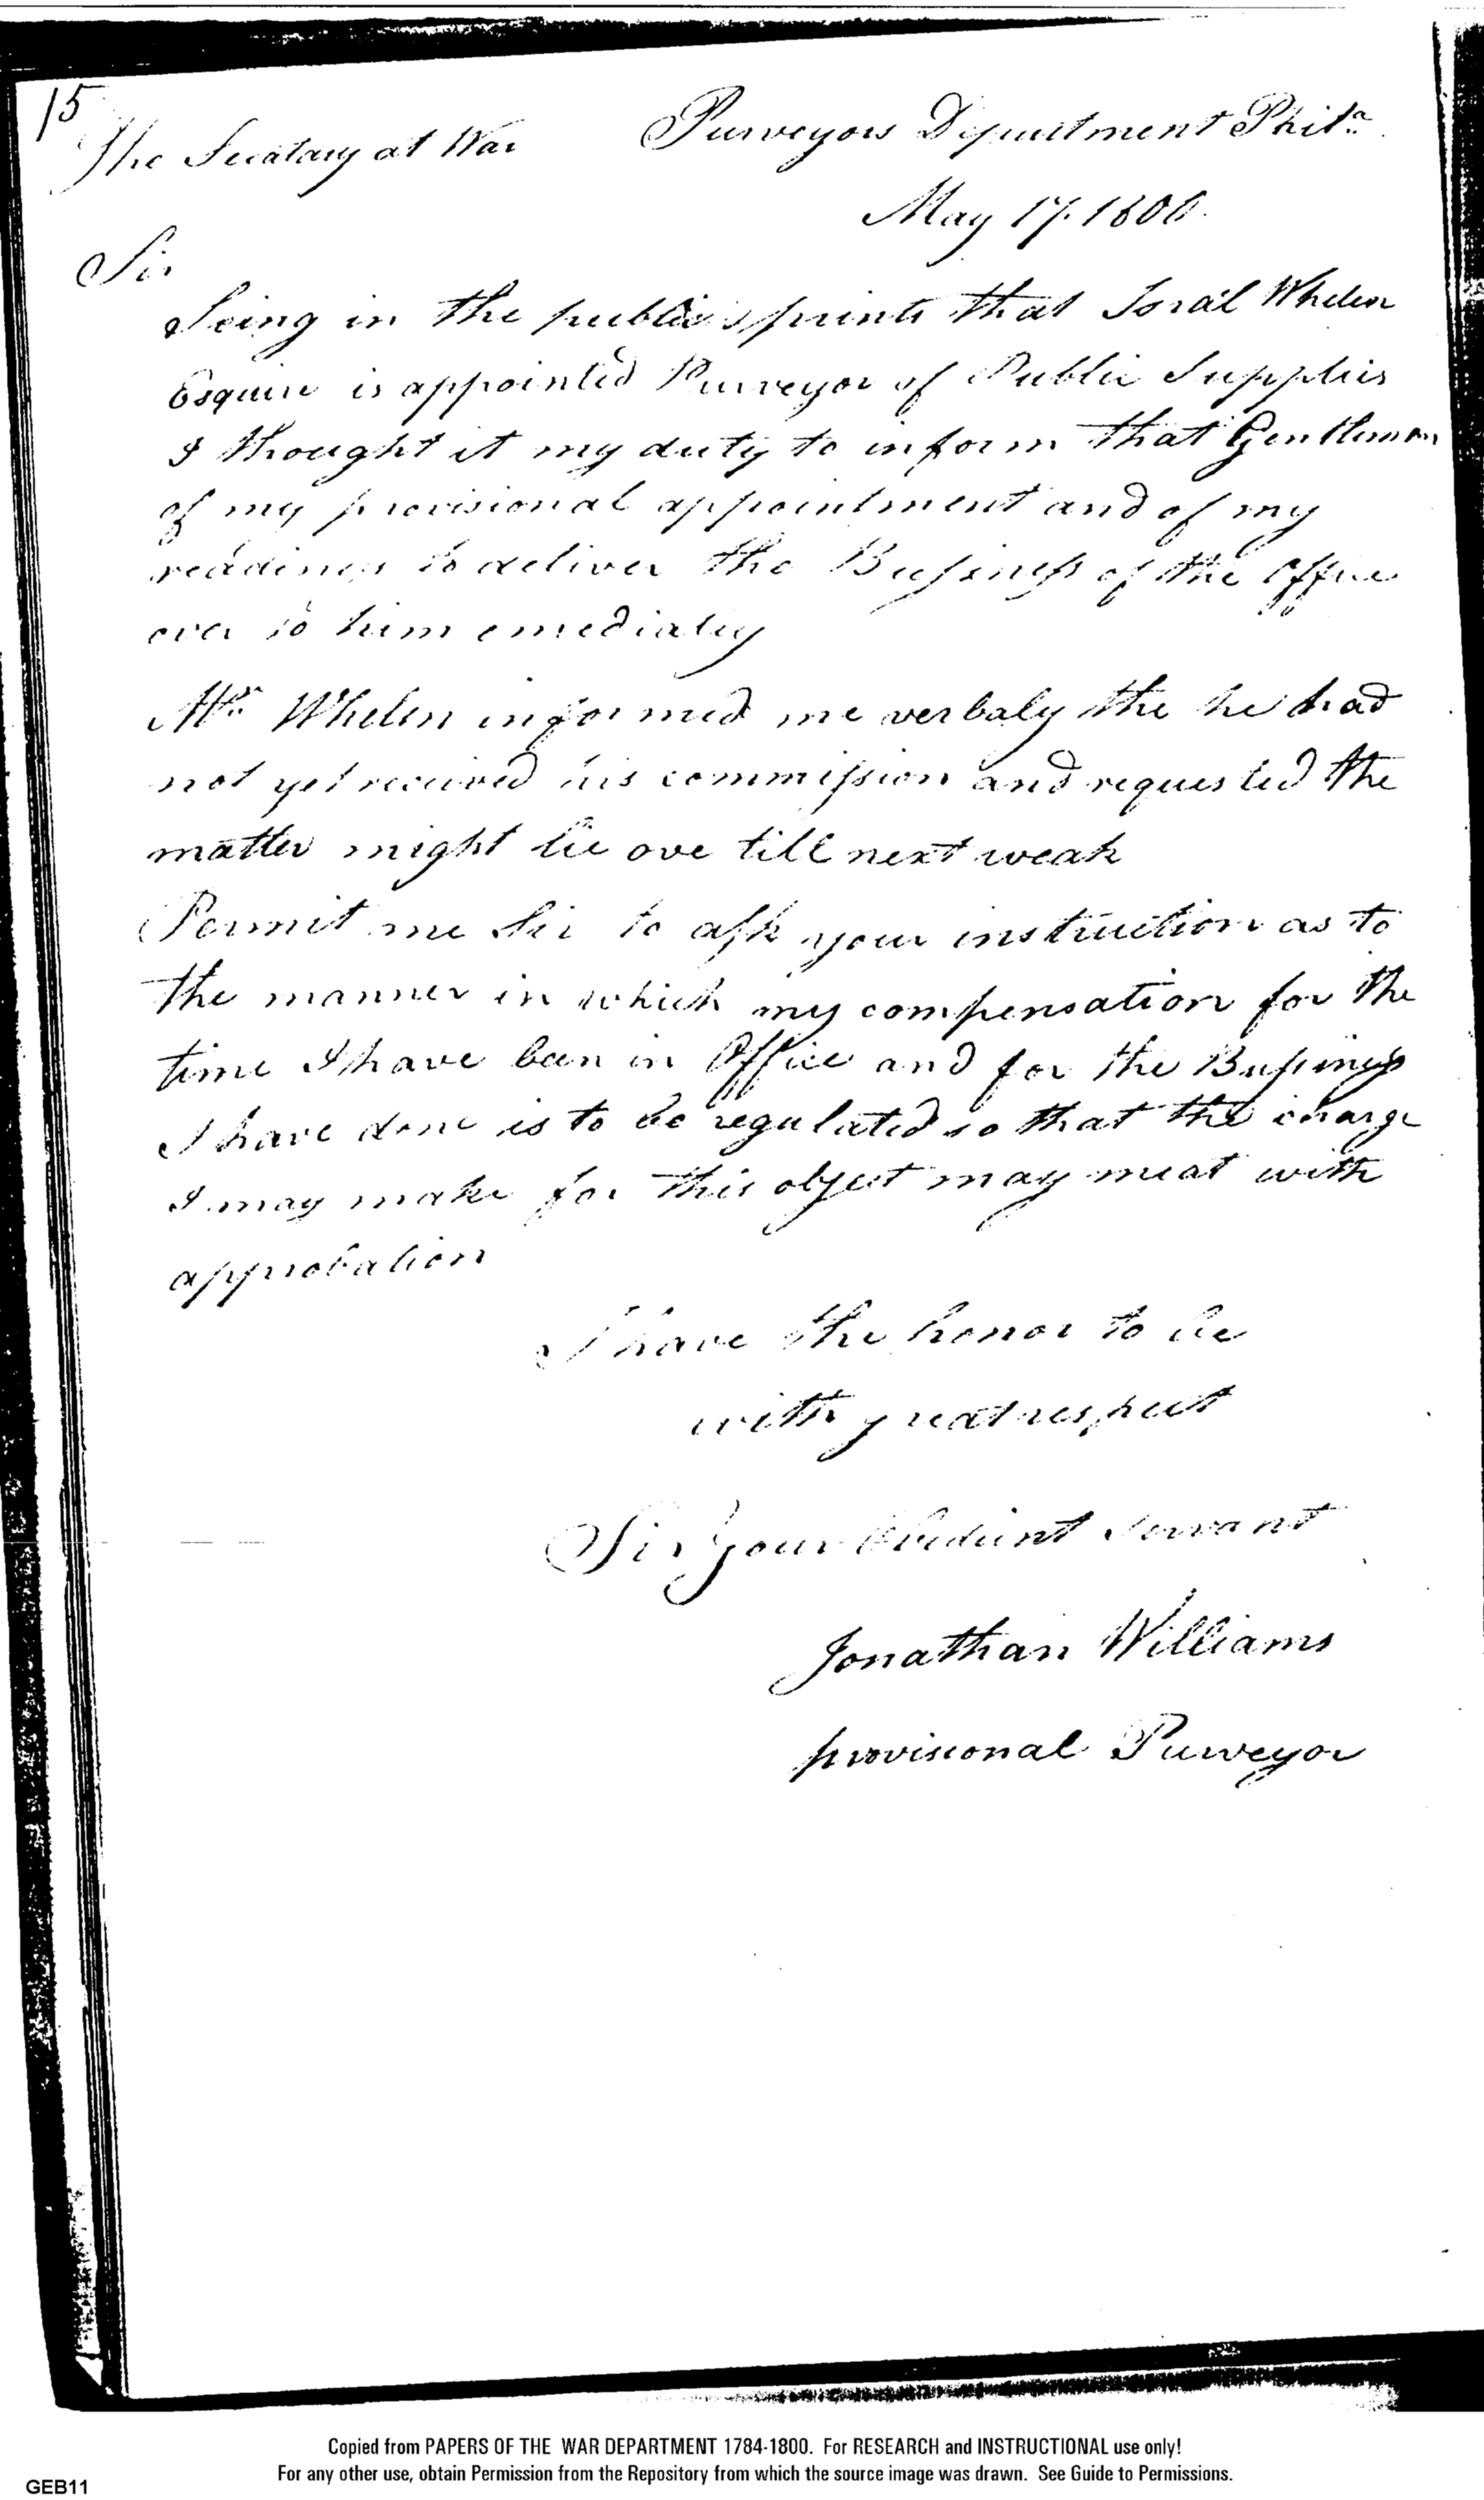 15
The Secatary at War Purveyors Department Phila
May 17. 1800.
Sir
Seing in the public prints that Isra'l Whelen
Esquire is appointed Purveyor of Public Supplies
I thought it my duty to inform that Gentleman
of my provisional appointment and of my
readiness to deliver the Business of the Office
over to him emediatly
Mr Whelen informed me verbaly the he had
not yet received his commission and requested the
matter might lie ove till next weak
Permit me Sir to ask your instruction as to
the manner in which my compensation for the
time I have been in Office and for the Business
I have done is to be regulated so that the charge
I may make for this object may meat with
approbation
I have the honor to be
with great respect
Sir Your Obedient Servant
Jonathan Williams
provisional Purveyor
Copied from PAPERS OF THE WAR DEPARTMENT 1784-1800. For RESEARCH and INSTRUCTIONAL use only!
For any other use, obtain Permission from the Repository from which the source image was drawn. See Guide to Permissions.
GEB11